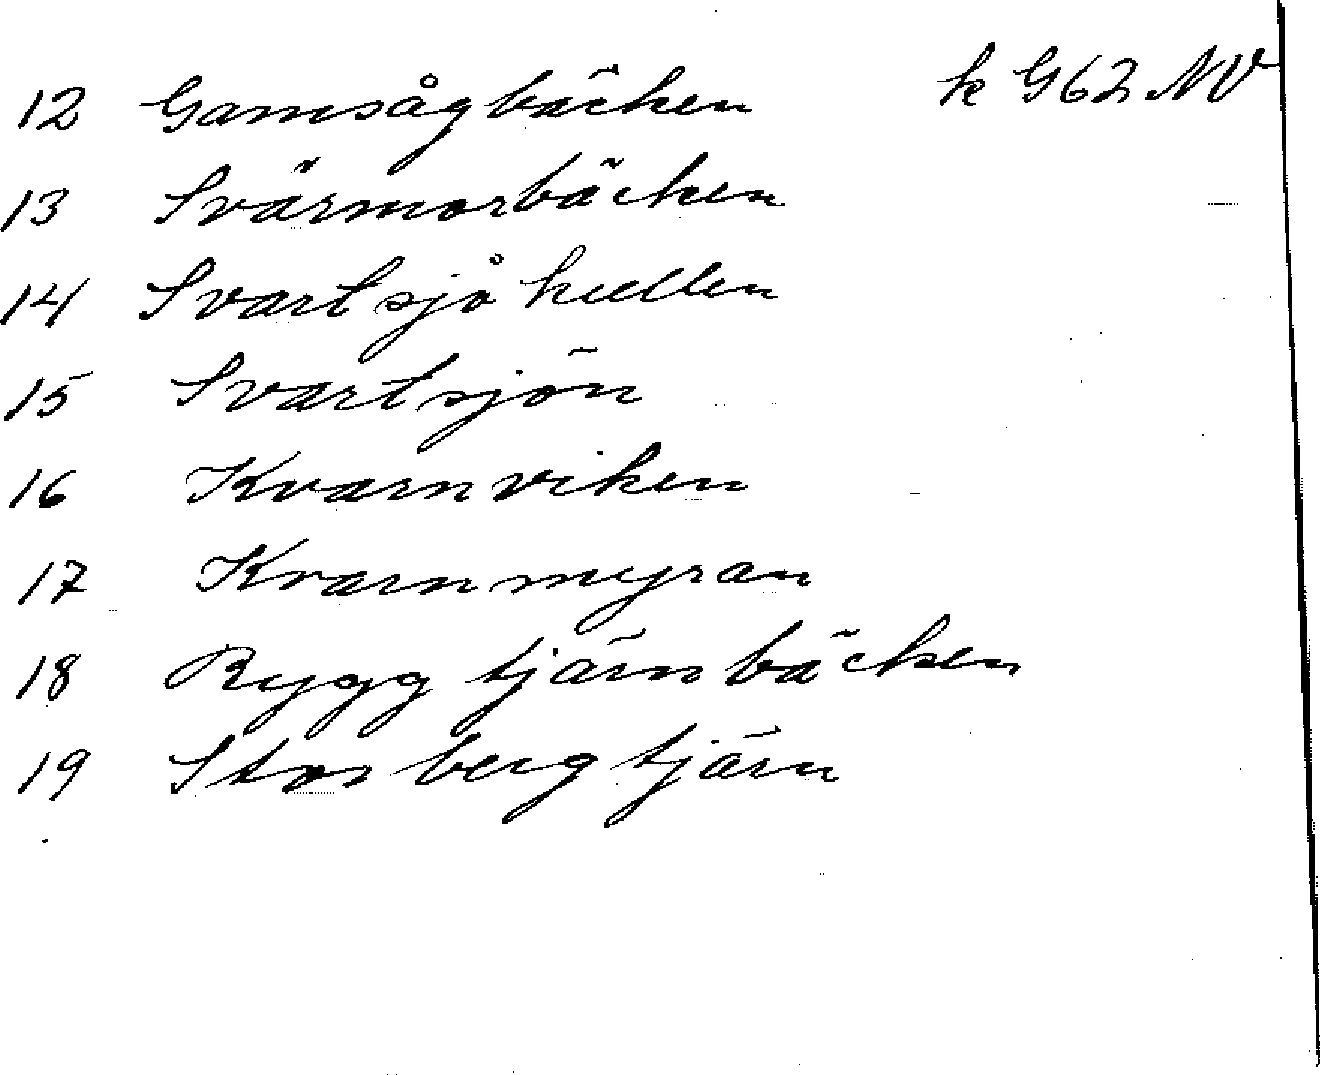 k G62 NV
12 Gamsågbäcken
13 Svärmorbäcken
14 Svartsjökullen
15 Svartsjön
16 Kvarnviken
17 Kvarnmyran
18 Ryggtjärnbäcken
19 Storbergtjärn